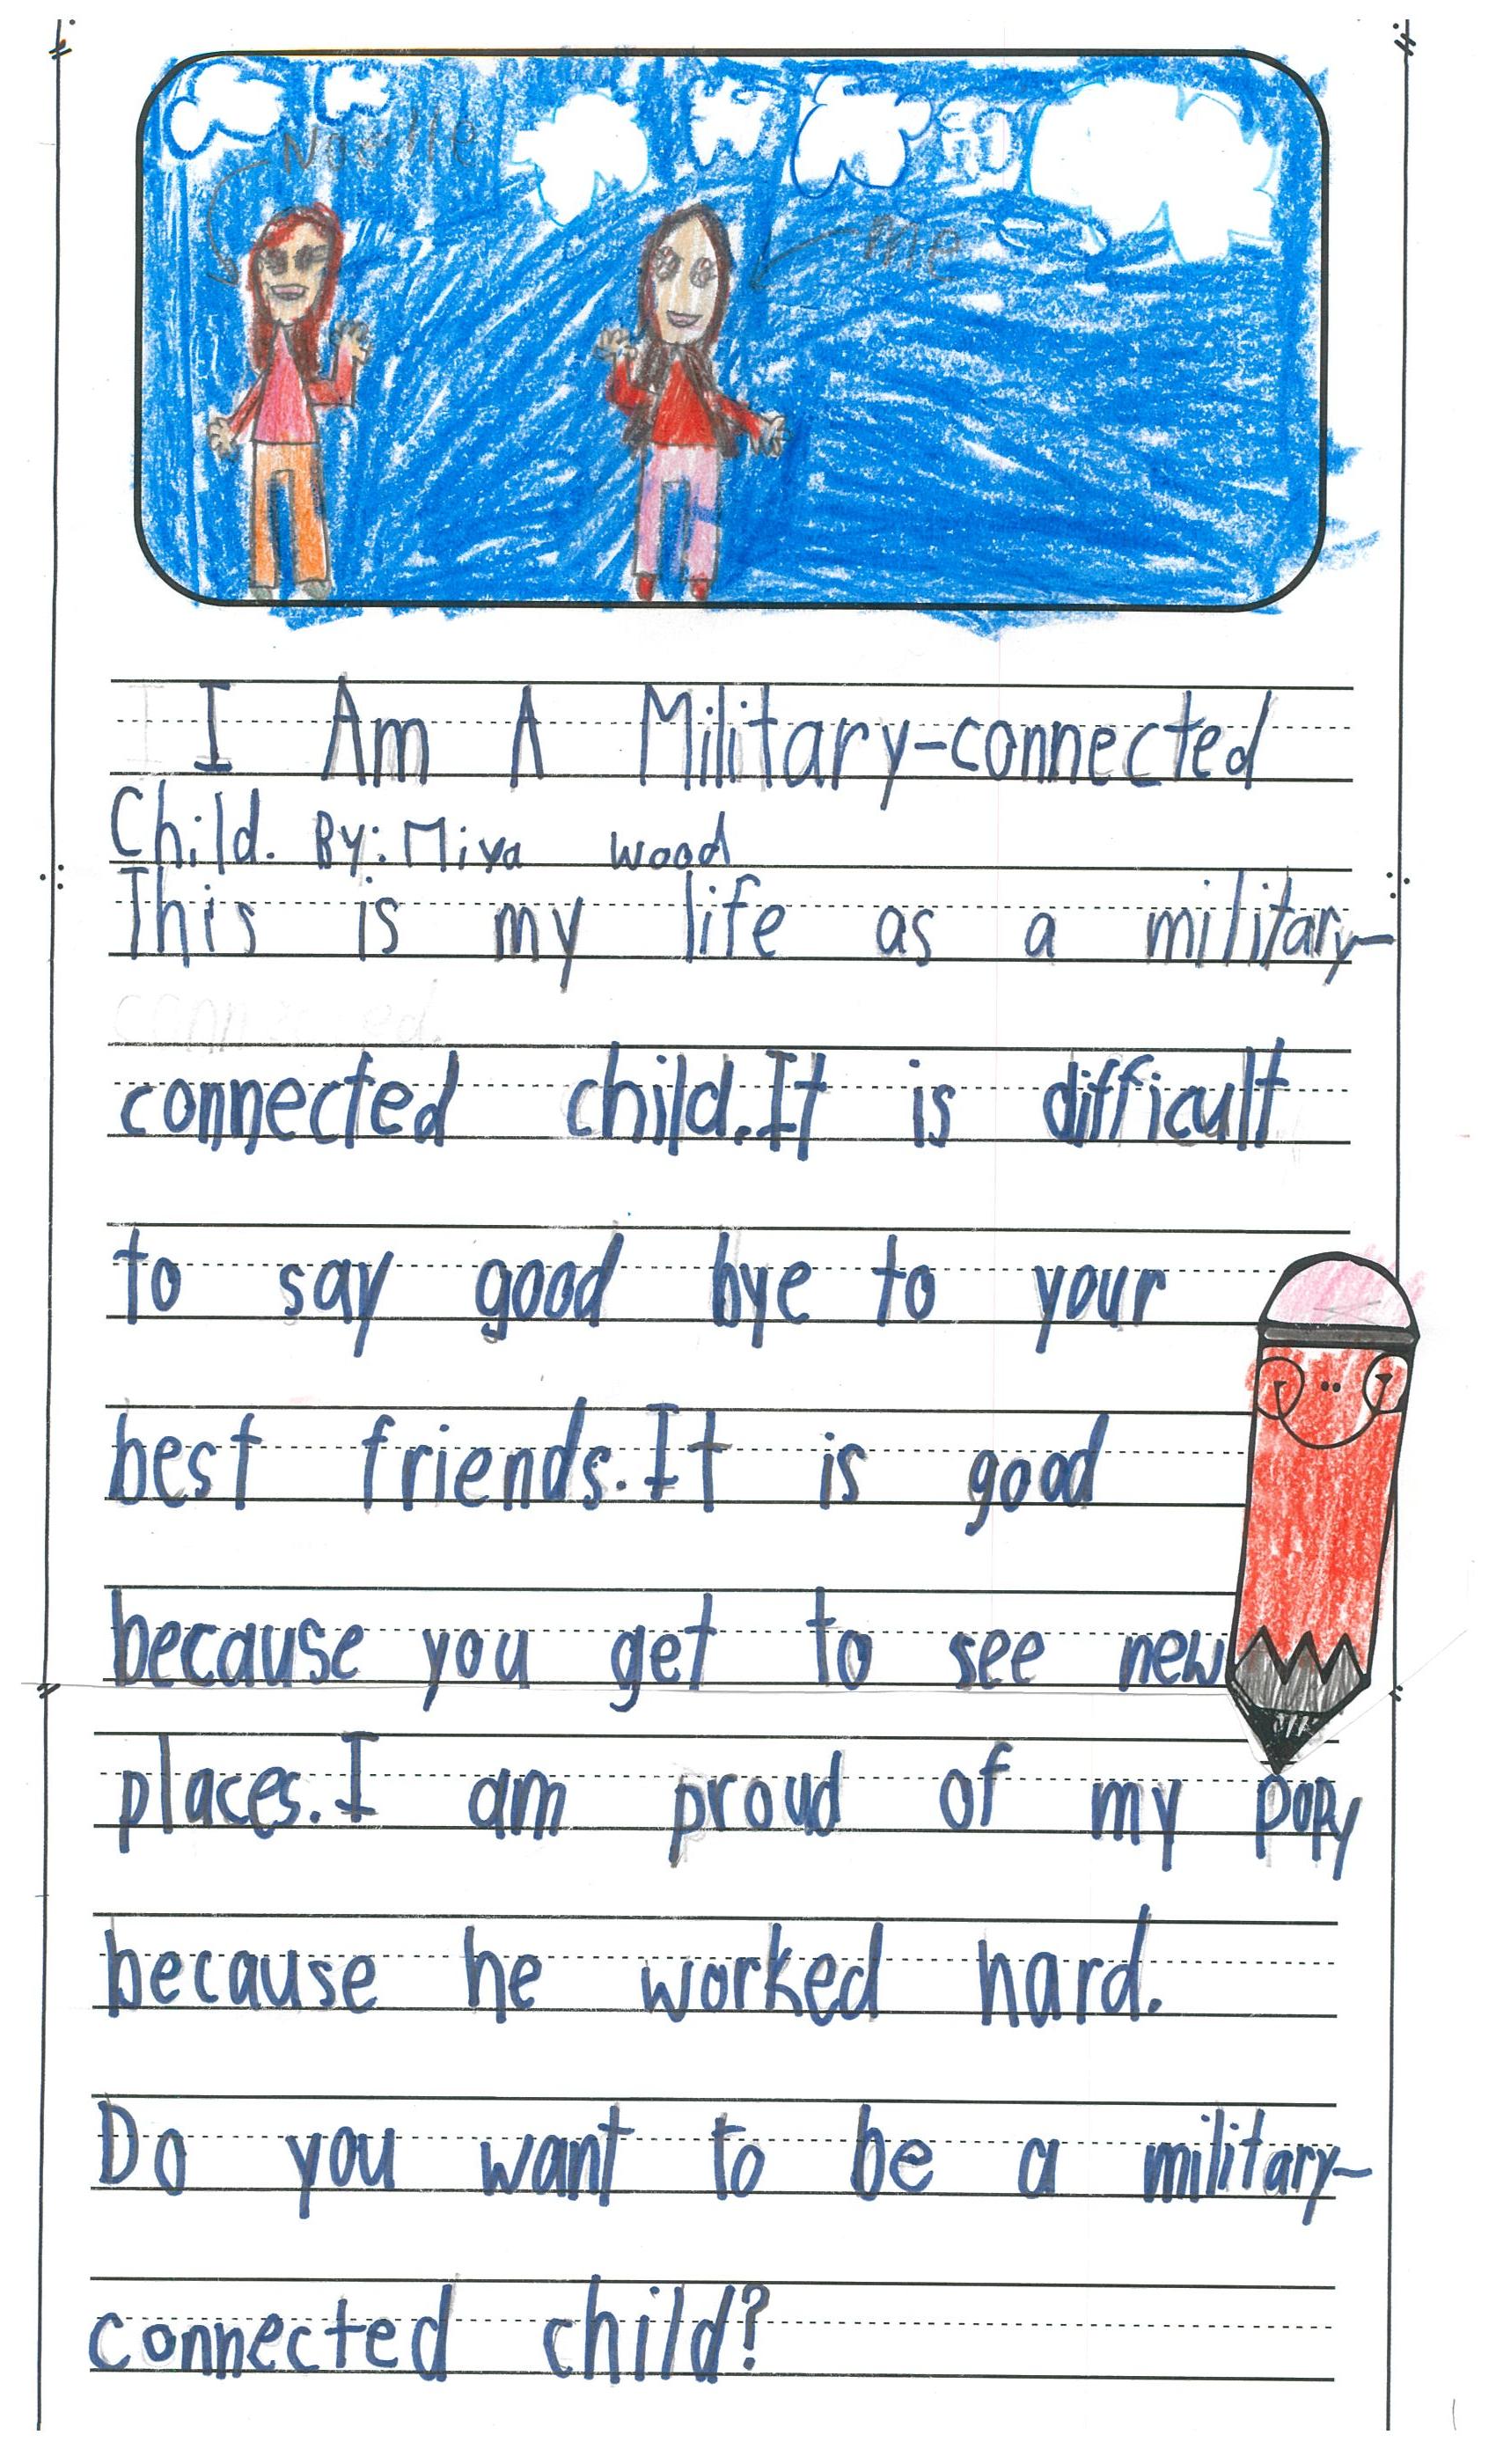 Noelle
me
I Am A Military-connected
Child. By: Miya Wood
This is my life as a military-
connected child. It is difficult
to say good bye to your
best friends. It is good
because you get to see new
places. I am proud of my popy
because he worked hard.
Do you want to be a military-
connected child?